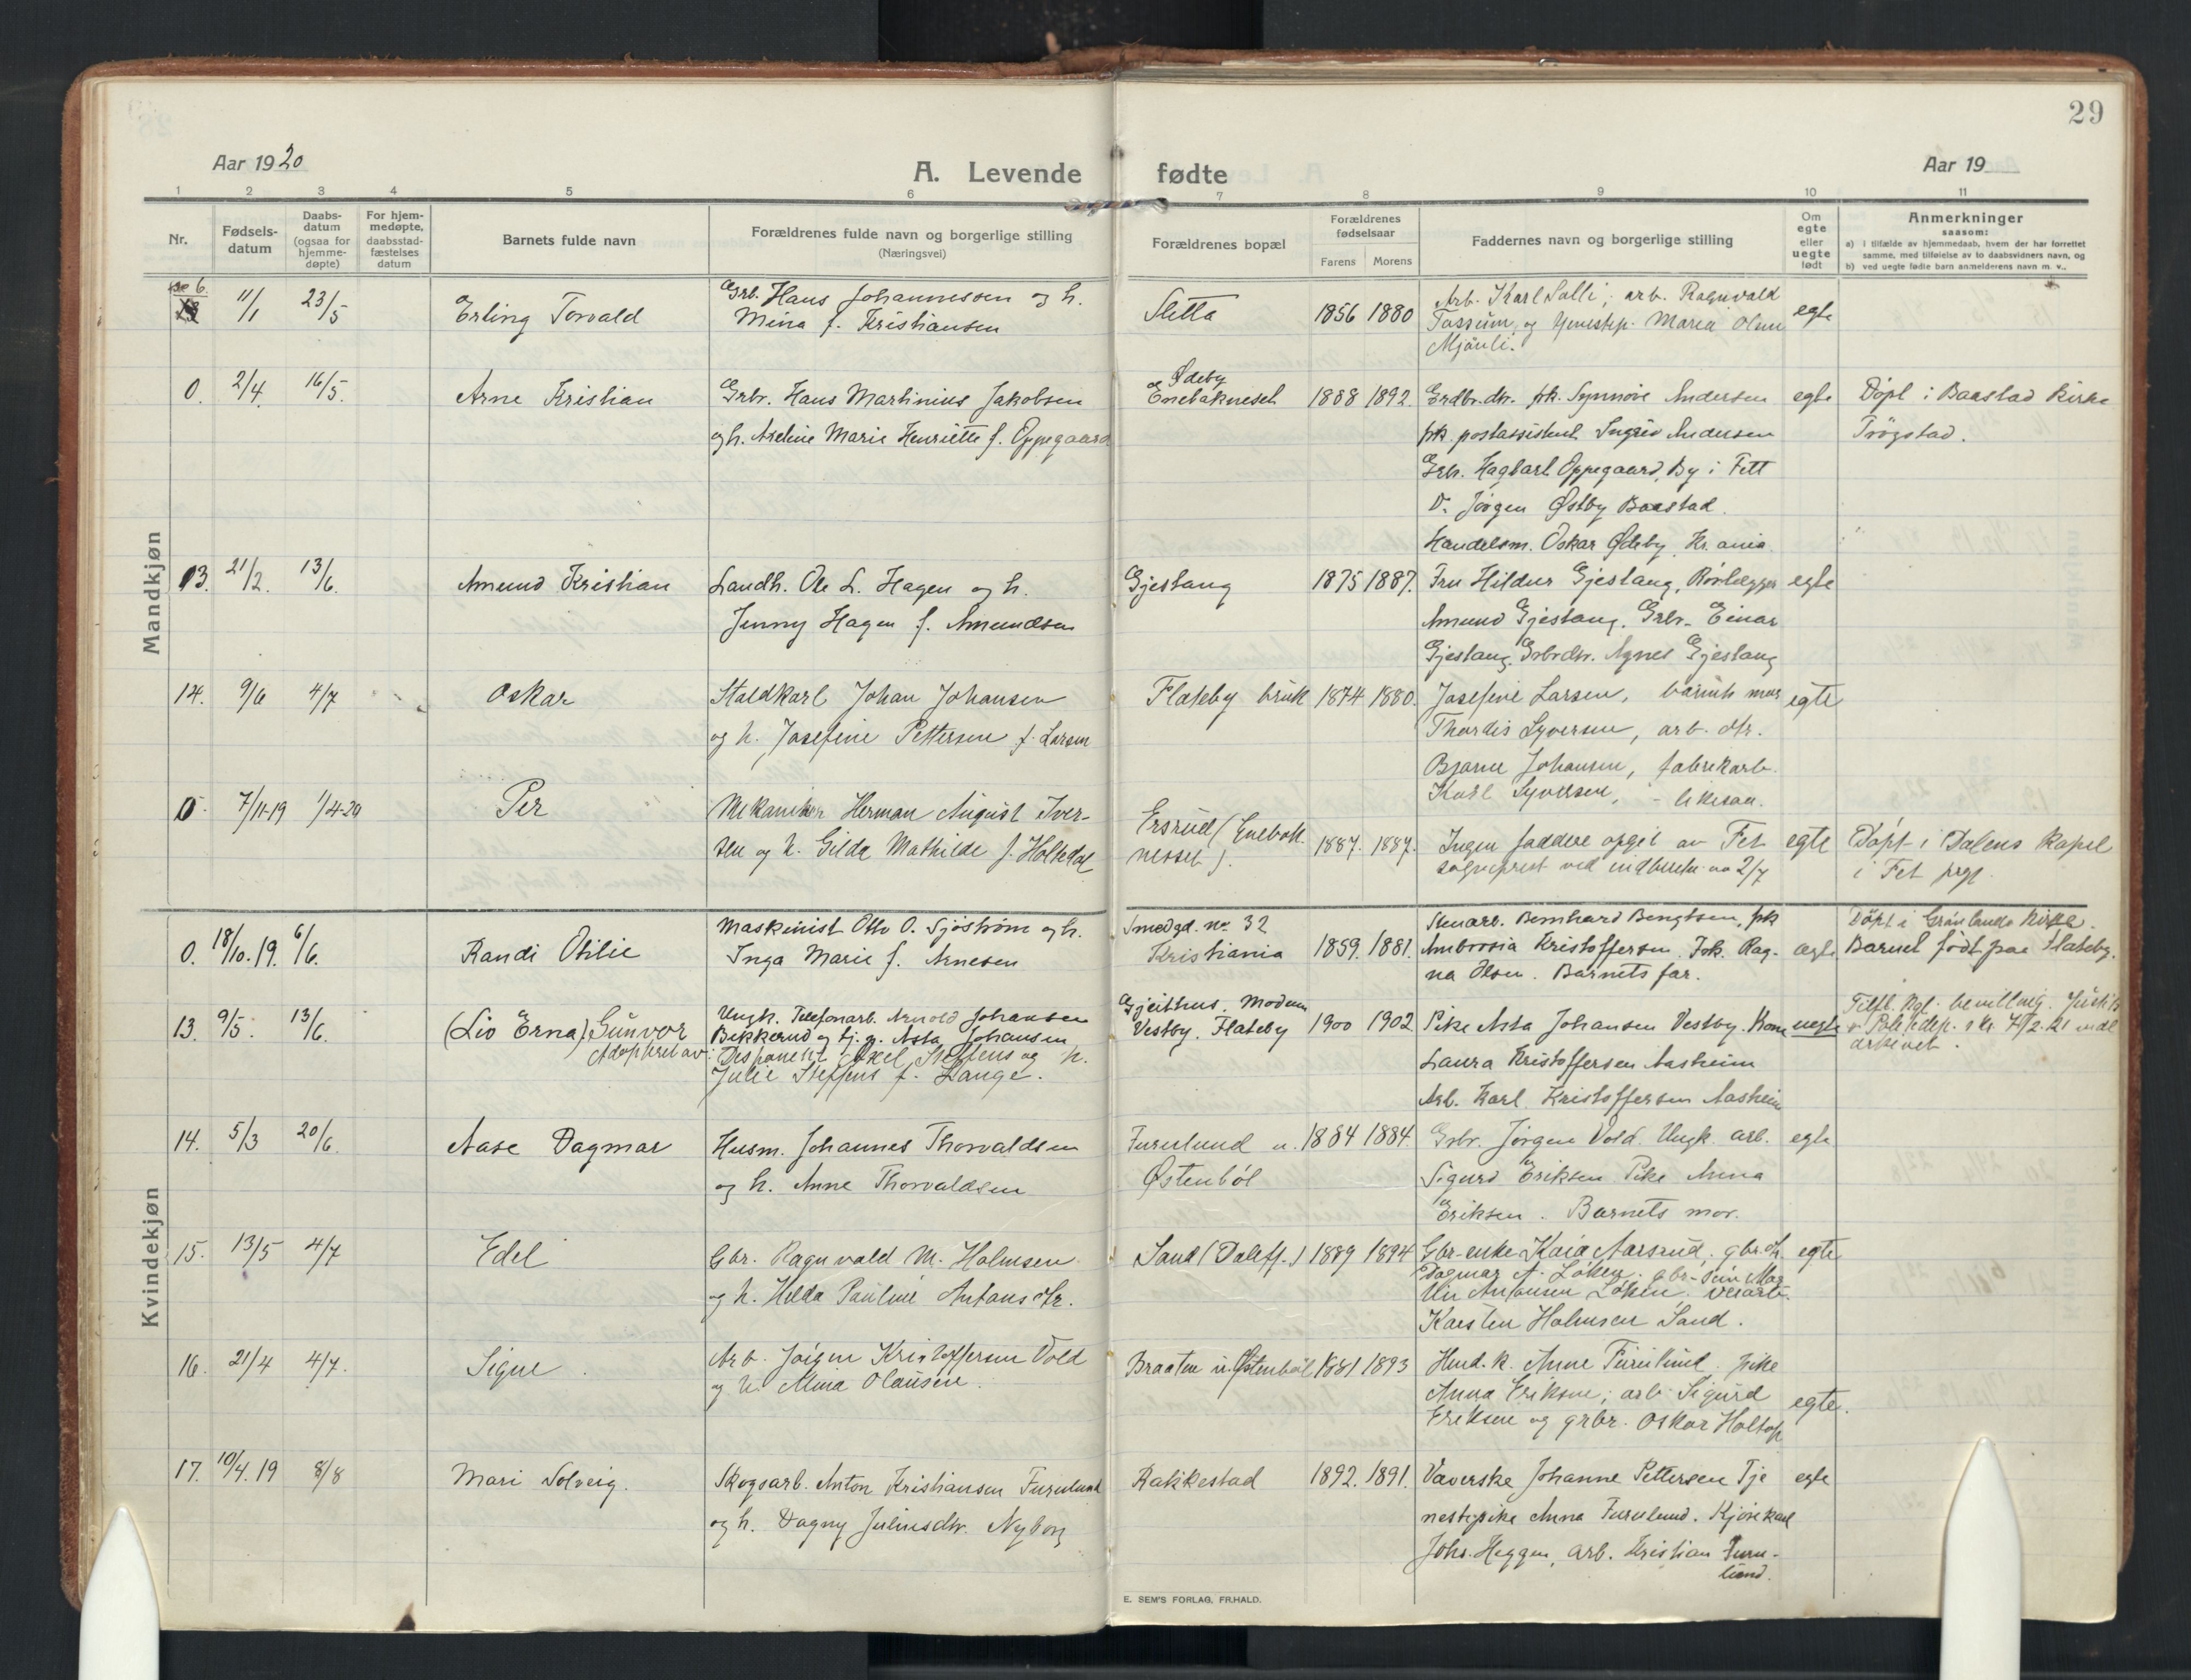 29
Aar 1920
A. Levende fødte
Aar 19
1 2 3 4 5 6 7 8 9 10 11
Nr.
Fødsels-
datum
Daabs-
datum
(ogsaa for
hjemme-
døpte)
For hjem-
medøpte,
daabsstad-
fæstelses
datum
Barnets fulde navn
Forældrenes fulde navn og borgerlige stilling
(Næringsvei)
Forældrenes bopæl
Forældrenes
fødselsaar
Farens Morens
Faddernes navn og borgerlige stilling
Om
egte
eller
uegte
født
Anmerkninger
saasom:
a) i tilfælde av hjemmedaab, hvem der har forrettet
samme, med tilføielse av to daabsvidners navn, og
b) ved uegte fødte barn anmelderens navn m. v..
Mandkjøn
11/1 23/5 Erling Torvald
Grb. Hans Johannessen og h.
Mina f. Kristiansen
Sletta 1856 1880
Arb. Karl Salli; arb. Ragnvald
Tassum, og tjenestep. Maria Olsen
Mjauli.
egte
0. 2/4 16/5 Arne Kristian
Grbr. Hans Martinius Jakobsen
og h. Aseline Marie Henriette f. Oppegaard
Ødeby
Enebaknesset 1888 1892.
Grdbr.dtr. frk. Synnøve Andersen
frk. postassistent Ingrid Andersen
Grbr. Hagbart Oppegaard, By i Fett
D. Jørgen Østby Baastad.
Handelsm. Oskar Ødeby Kr.ania.
egte
Døpt i Baastad Kirke
Trøgstad.
13. 21/2. 13/6. Amund Kristian
Landh. Ole L. Hagen og h.
Jenny Hagen f. Amundsen
Gjestang 1875 1887.
Fru Hildur Gjestang, Rørlægger
Amund Gjestang. Grbr. Einar
Gjestang. Grbrdtr. Agnes Gjestang
egte
14. 9/6 4/7 Oskar
Staldkarl Johan Johansen
og h. Josefine Pettersen f. Larsen
Flateby bruk 1874 1880.
Josefine Larsen, barnets mor
Thordis Syversen, arb. dtr.
Bjarne Johansen, fabrikarb.
Karl Syversen, - likesaa.
egte
0. 7/11-19 1/4-20 Per
Mekaniker Herman August Iver-
sen og h. Gilda Mathilde f. Holtedal
Ersrud (Enebak
nesset). 1887. 1887.
Ingen faddere opgit av Fet
sogneprest ved indberetn. av 2/7
egte
Døpt i Dalens Kapel
i Fet prgj.
Kvindekjøn
0. 18/10.19. 6/6. Randi Otilie
Maskinist Otto O. Sjøstrøm og h.
Inga Marie f. Arnesen
Smedgd. no. 32
Kristiania 1859. 1881.
Stenarb. Bernhard Bengtsen, frk
Ambrosia Kristoffersen. Frk. Rag-
na Olsen. Barnets far.
ægte
Døpt i Grønlands Kirke.
Barnet født paa Flateby.
13. 9/5. 13/6. (Liv Erna) Gunvor
Adoptert av:
Ungk. Telefonarb. Arnold Johansen
Bekkerud og tj.p. Asta Johansen
Disponent Axel Steffens og h.
Julie Steffens f. Lange.
Gjeithus, Modum
Vestby. Flateby 1900 1902
Pike Asta Johansen Vestby. Kone
Laura Kristoffersen Aasheim
Arb. Karl Kristoffersen Aasheim
uegte
arkivet.
14. 5/3 20/6. Aase Dagmar
Husm. Johannes Thorvaldsen
og h. Anne Thorvaldsen
Furulund u. 1884 1884.
Østenbøl
Grbr. Jørgen Vold. Ungk. arb.
Sigurd Eriksen Pike Anna
Eriksen. Barnets mor.
egte
15. 13/5 4/7 Edel
Gbr. Ragnvald M. Holmsen
og h. Hilda Pauline Antonsdtr.
Sand (Dalefj.) 1889 1894
Gbr-enke Kaia Aarsrud. gbr.dtr.
Dagmar A. Løken. gbr-søn Mar
tin Antonsen Løken.
Karsten Holmsen Sand.
egte
16. 21/4 4/7. Signe.
Arb. Jørgen Kristoffersen Vold
og h. Mina Olausen.
Braaten u. Østenbøl 1881 1893
Husm.k. Anne Furulund. pike
Anna Eriksen; arb. Sigurd
Eriksen og grbr. Oskar Holtop
egte.
17. 10/4.19 8/8 Mari Solveig.
Skogsarb. Anton Kristiansen Furulund
og h. Dagny Juliusdtr. Nyborg
Rakkestad 1892. 1891.
Væverske Johanne Pettersen Tje
nestepike Anna Furulund. Kjørekarl
Johs. Heggen, arb. Kristian Furu-
lund.
egte
E. SEM'S FORLAG, FR.HALD.